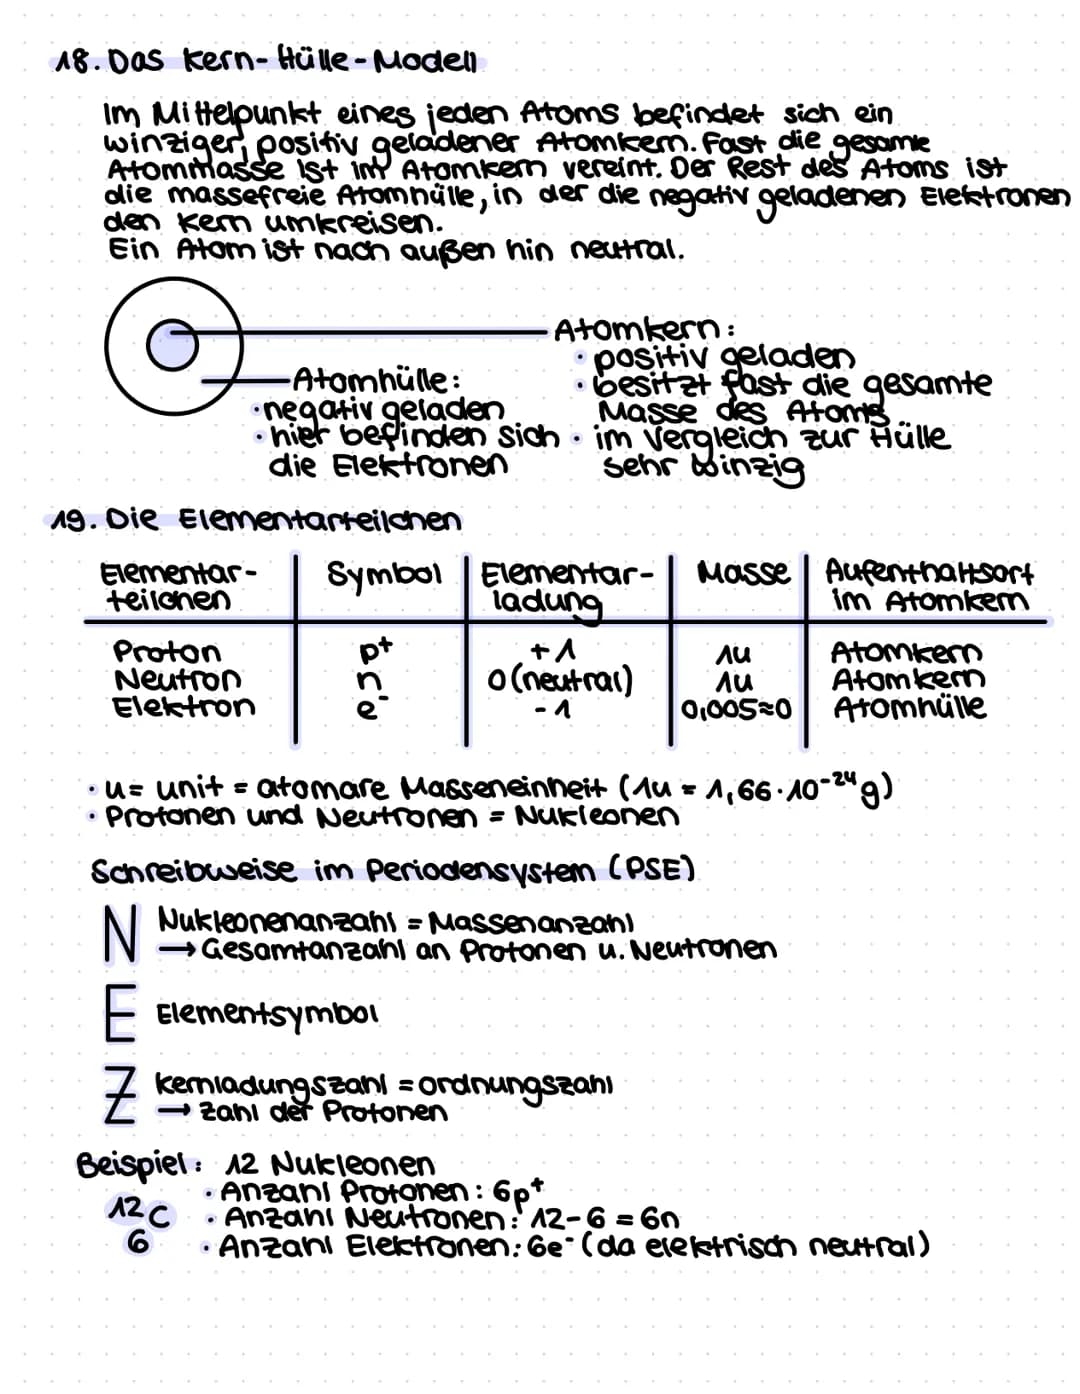 18. Das Kern-Hülle-Modell
Im Mittelpunkt eines jeden Atoms befindet sich ein
winziger, positiv geladener Atomkern. Fast die gesamte
Atommasse ist im Atomkern vereint. Der Rest des Atoms ist
die massefreie Atomhülle, in der die negativ geladenen Elektronen
den Kern umkreisen.
Ein Atom ist nach außen hin neutral.
Atomkern:
• positiv geladen
• besitzt fast die gesamte
Masse des Atoms
• im Vergleich zur Hülle
sehr winzig
Atomhülle:
• negativ geladen
• hier befinden sich
die Elektronen
19. Die Elementarteilchen
Elementar- Symbol Elementar- Masse Aufenthaltsort
teilchen ladung im Atomkern
Proton p⁺ +1 1u Atomkern
Neutron n 0 (neutral) 1u Atomkern
Elektron e⁻ -1 0,005≈0 Atomhülle
• u = unit = atomare Masseneinheit (1u = 1,66·10⁻²⁴g)
• Protonen und Neutronen = Nukleonen
Schreibweise im Periodensystem (PSE)
N Nukleonenanzahl = Massenanzahl
→ Gesamtanzahl an Protonen u. Neutronen
E Elementsymbol
Z Kernladungszahl = Ordnungszahl
→ Zahl der Protonen
Beispiel: 12 Nukleonen
• Anzahl Protonen: 6p⁺
12 C • Anzahl Neutronen: 12-6 = 6n
6 • Anzahl Elektronen: 6e⁻ (da elektrisch neutral)